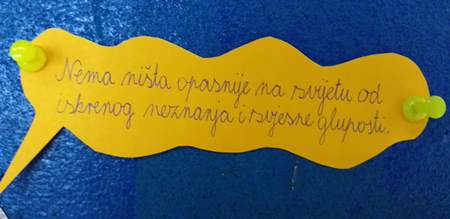 Nema ništa opasnije na svijetu od
iskrenog neznanja i svjesne gluposti.